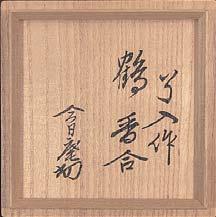 了入作
鶴香合
今日庵